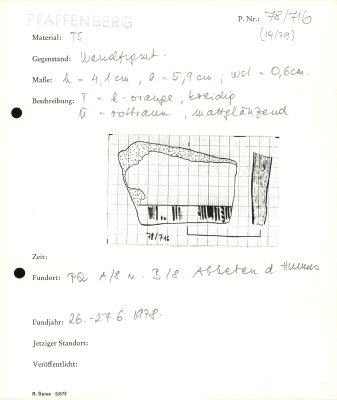 PFAFFENBERG
P. Nr.: 78/716
(14/79)
Material: TS
Gegenstand: Wandfrgmt.
Maße: h = 4,1 cm, b = 5,9 cm, wst = 0,6 cm.
Beschreibung: T = h-orange, kreidig
Ü = rotbraun, mattglänzend
78/716
Zeit:
Fundort: PQ A/8 u. B/8 Abheben d. Humus
Fundjahr: 26.-27.6.1978.
Jetziger Standort:
Veröffentlicht:
R. Spies 5/872